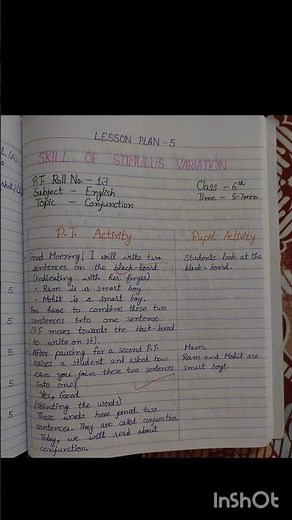 LESSON PLAN - 5
SKILL OF STIMULUS VARIATION
P.T. Roll No - 13
Subject - English
Topic - Conjunction
Class - 6th
Time - 5-7 min
P.T. Activity
Pupil Activity
Good Morning! I will write two
sentences on the black-board
(indicating with her finger)
• Ram is a smart boy.
• Mohit is a smart boy.
You have to combine these two
sentences into one sentence
(P.T moves towards the black-board
to write on it).
After pausing for a second P.T
raises a student and asks how
can you join these two sentences
into one?
Yes, Good
(Pointing the words)
These words have joined two
sentences. They are called conjunction
Today, we will read about
conjunction.
Students look at the
black-board.
Mam
Ram and Mohit are
smart boys.
5
5
5
5
5
InShOt